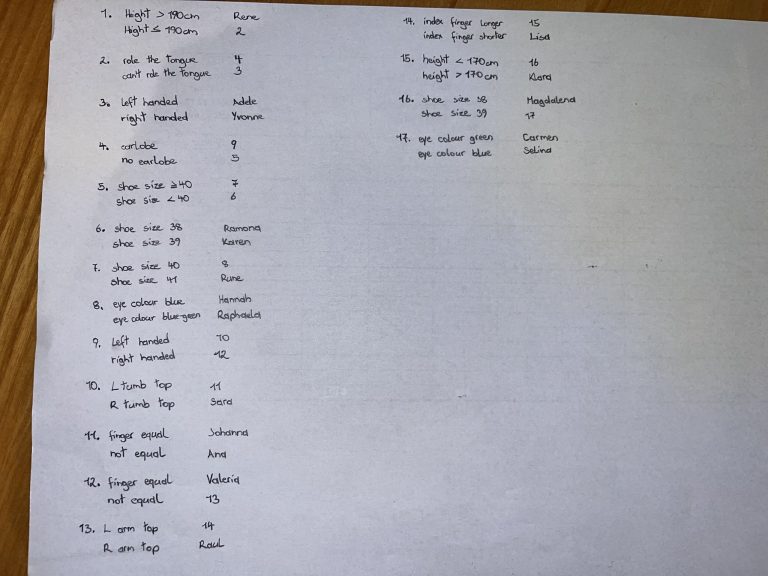 1. Hight > 190cm Rene
Hight ≤ 190cm 2
2. role the Tongue 4
can't role the Tongue 3
3. left handed Adde
right handed Yvonne
4. earlobe 9
no earlobe 5
5. shoe size ≥ 40 7
shoe size < 40 6
6. shoe size 38 Ramona
shoe size 39 Karen
7. shoe size 40 8
shoe size 41 Rune
8. eye colour blue Hannah
eye colour blue-green Raphaela
9. Left handed 10
right handed 12
10. L tumb top 11
R tumb top Sara
11. finger equal Johanna
not equal Ana
12. finger equal Valeria
not equal 13
13. L arm top 14
R arm top Raul
14. index finger longer 15
index finger shorter Lisa
15. height < 170cm 16
height > 170cm Klara
16. shoe size 38 Magdalena
shoe size 39 17
17. eye colour green Carmen
eye colour blue Selina